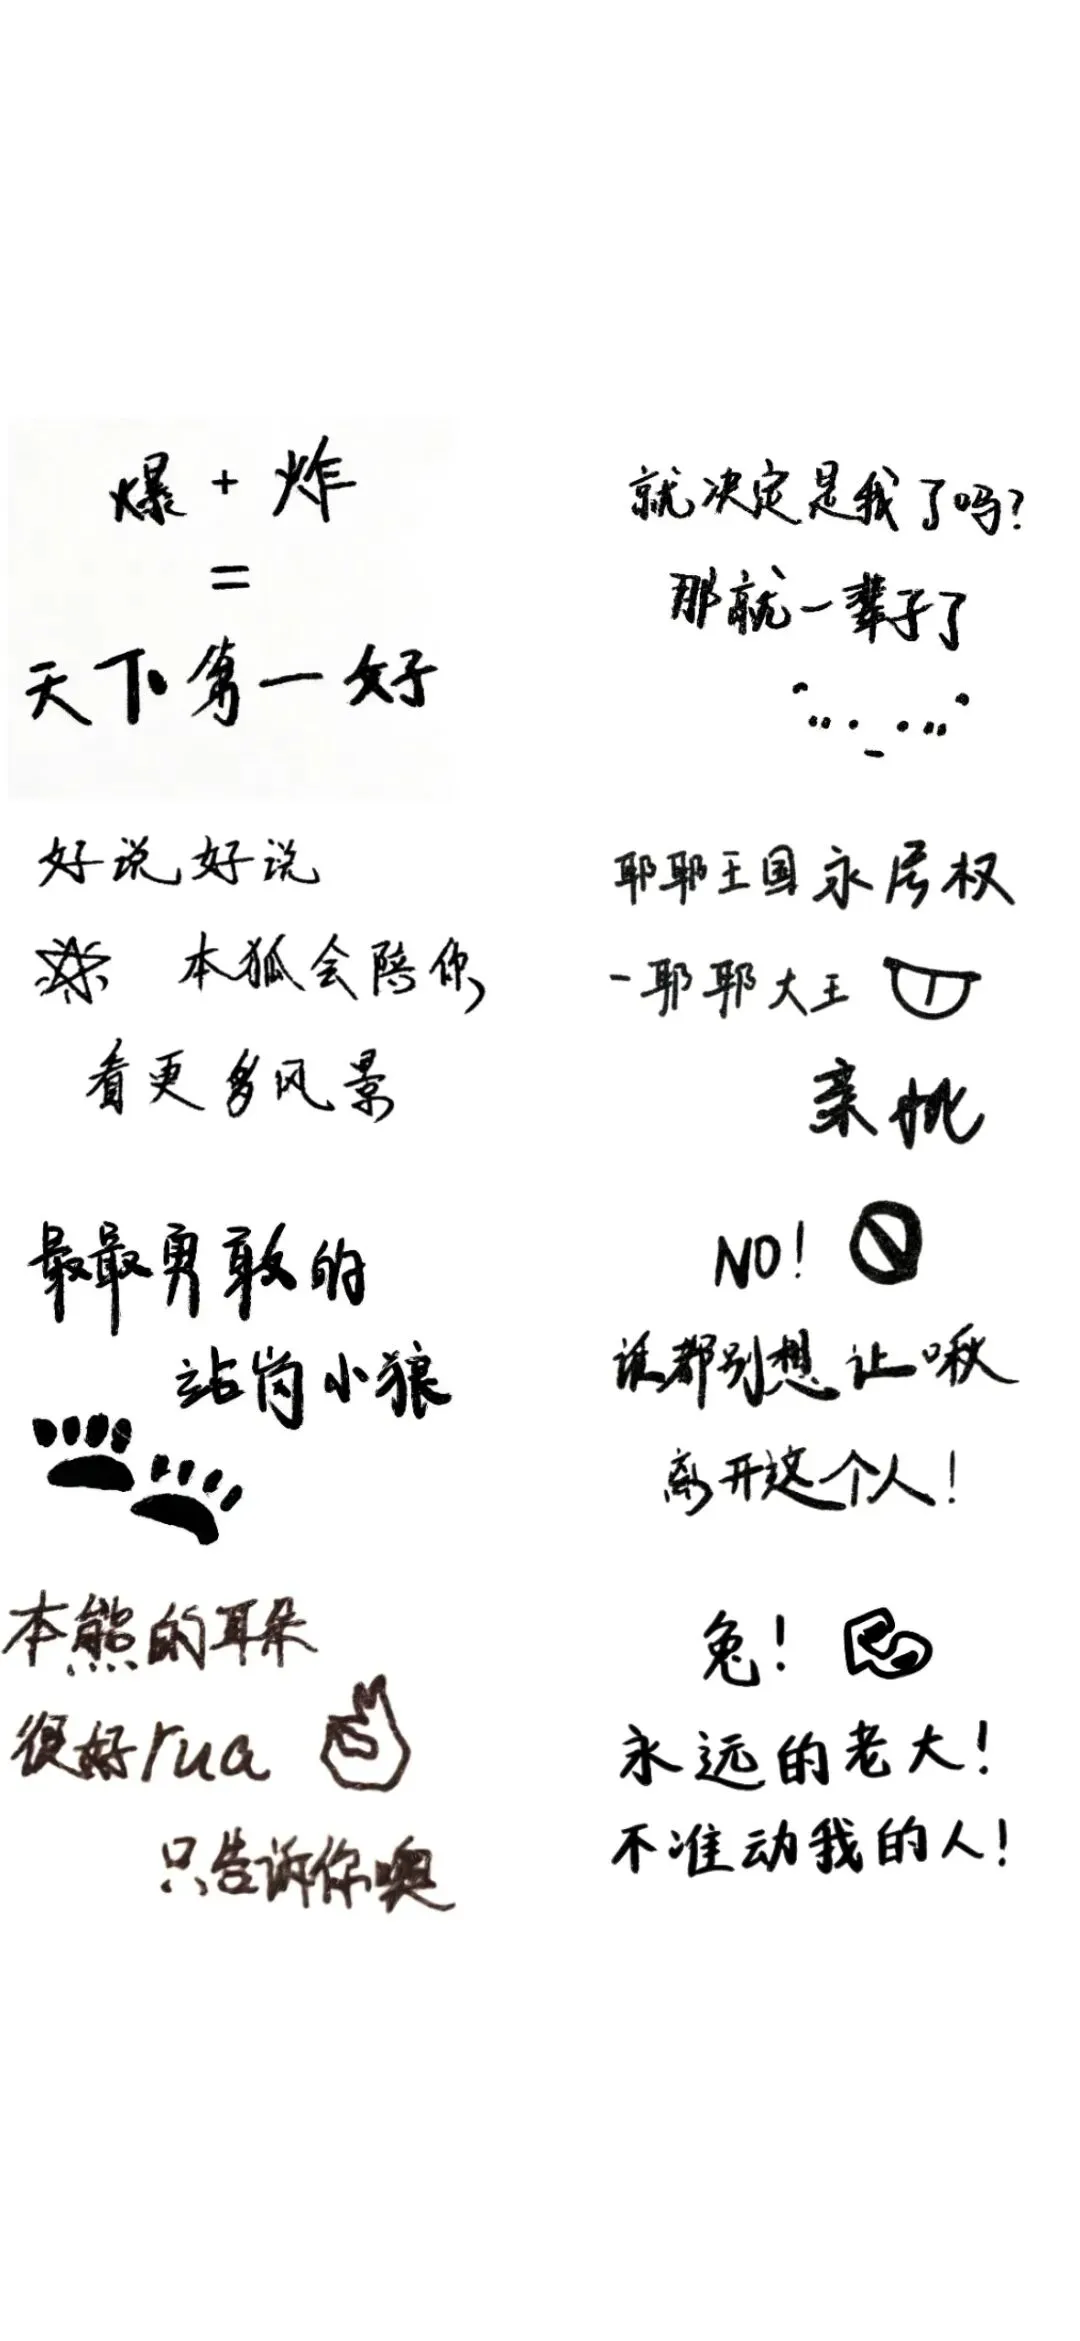 爆+炸
=
天下第一好
就决定是我了吗?
那就一辈子了
好说好说
本狐会陪你
看更多风景
耶耶王国永居权
-耶耶大王
亲批
最最勇敢的
站岗小狼
NO!
谁都别想让啾
离开这个人!
本熊的耳朵
很好rua
只告诉你噢
兔!
永远的老大!
不准动我的人!